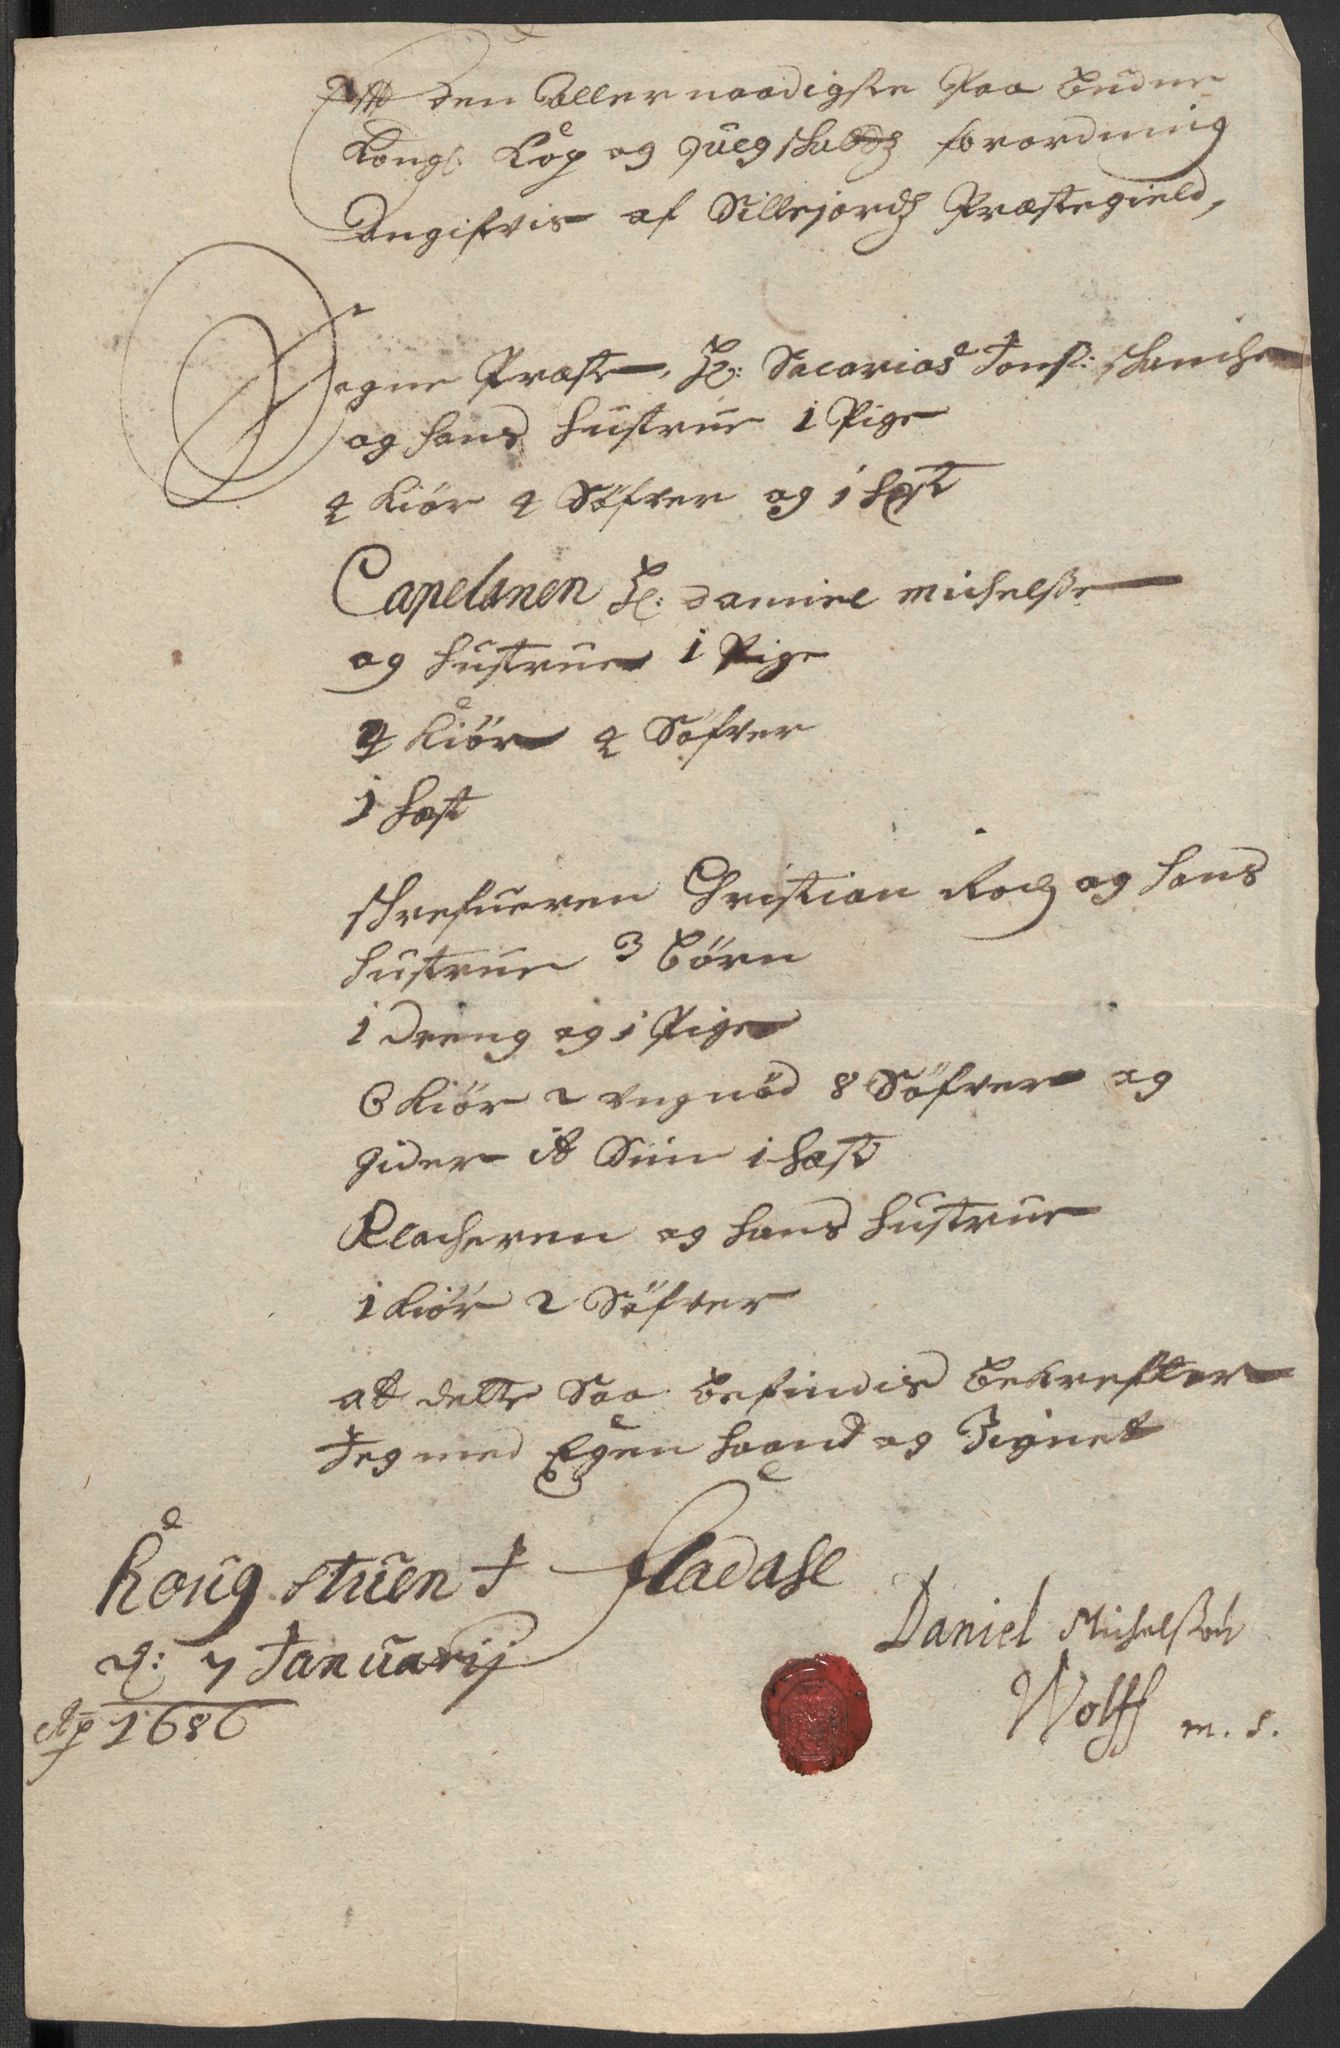 Efft den Allernaadigste Paa budne
Kongl: Kop og quegschatz forordning
Angifvis af Sillejordz Præstegield,
Sogne Præsten, Hr: Sacarias Jonß: schanche
og hans Hustrue 1 Pige
4 Kiør 4 Søfver og 1 hest
Capelanen Hr: Daniel Michelße
og Hustrue 1 Pige
4 Kiør 4 Søfver
1 hest
schrefueren Christian Koch og hans
Hustrue 3 børn
1 Dreng og 1 Pige
6 Kiør 2 ungnød 8 Søfver og
gider it Suin 1 hest
Klocheren og hans Hustrue
1 Kiør 2 Søfver
att dette Saa befindis bekrefter
Jeg med Egen haand og Zignet
stuen i Fladase
d: 7 Januarij
Ao 1686
Daniel Michelßøn
Wolff m. s.